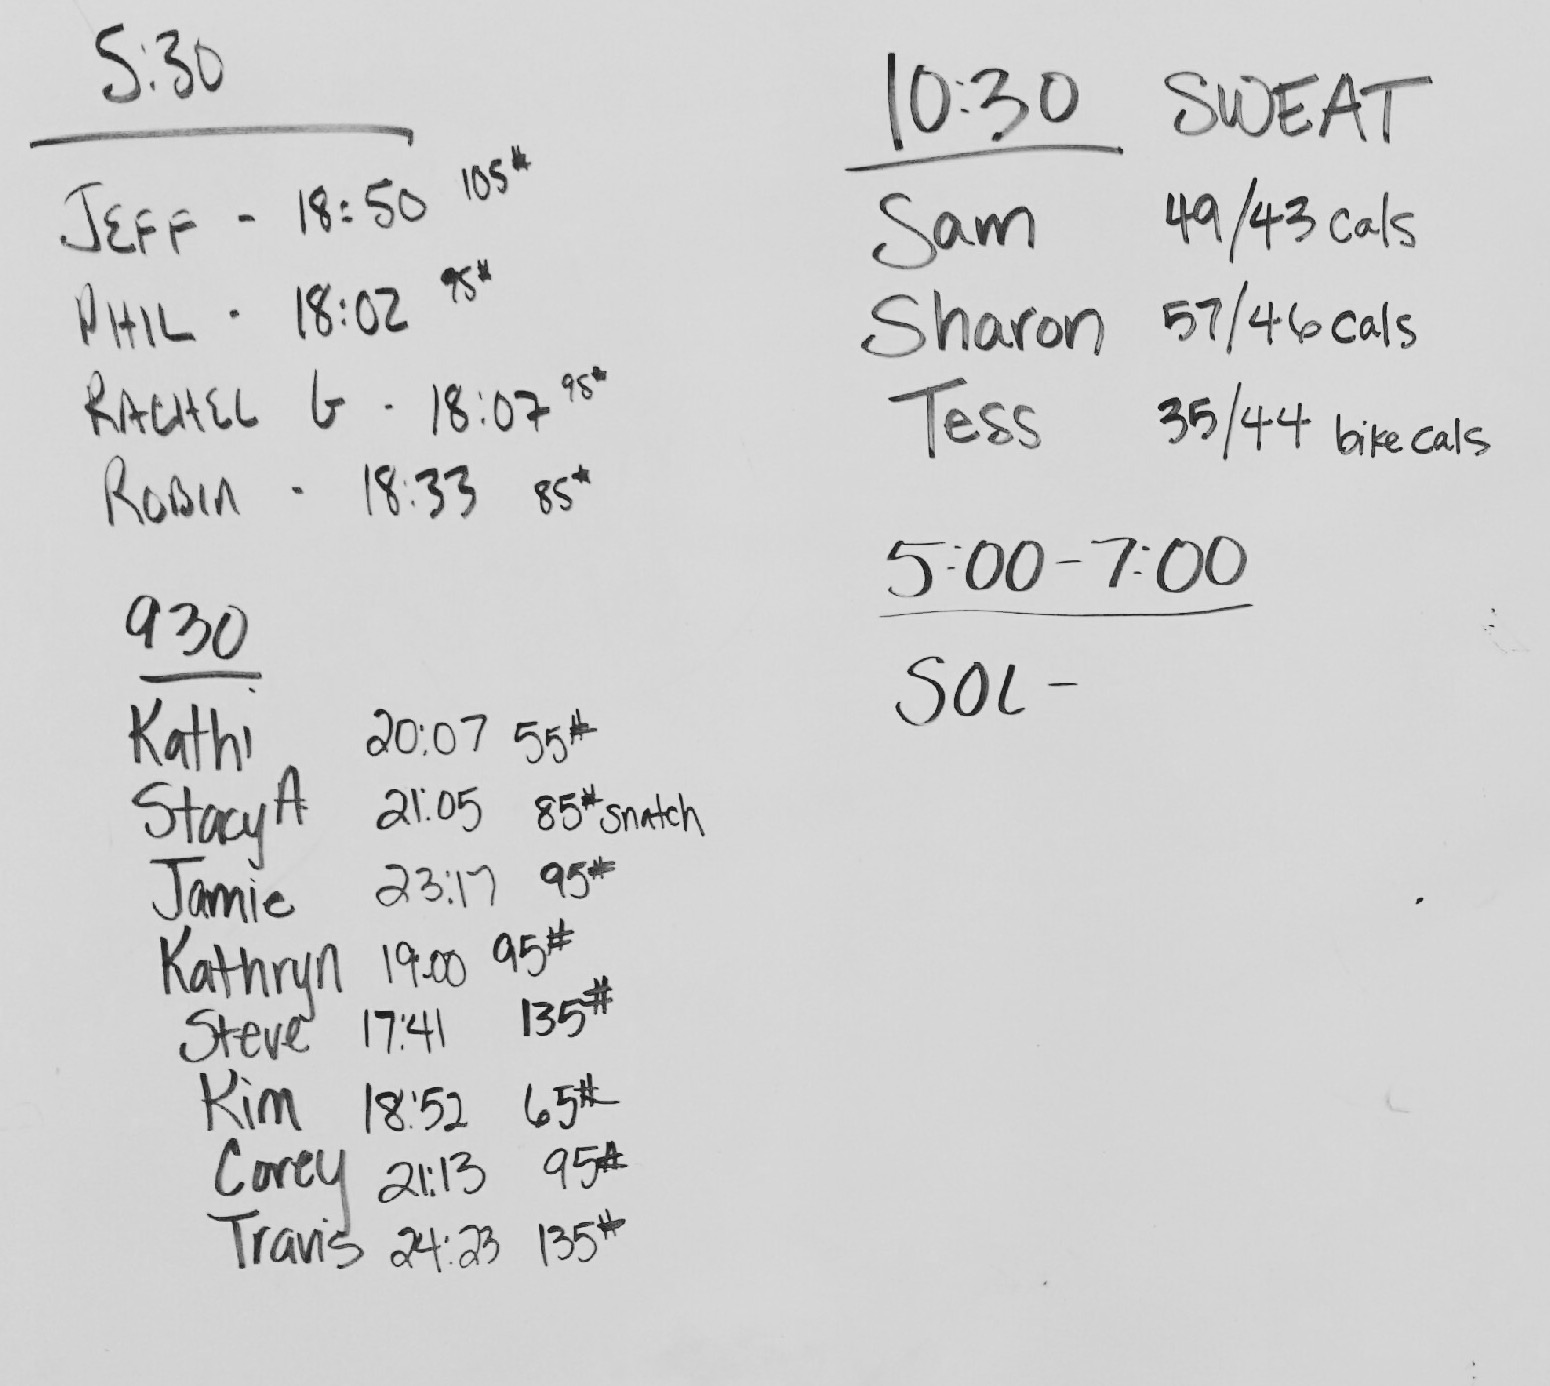 5:30
JEFF - 18:50 105#
PHIL - 18:02 95#
RACHEL G - 18:07 95#
ROBIN - 18:33 85#
930
Kathi 20:07 55#
Stacy A 21:05 85# snatch
Jamie 23:17 95#
Kathryn 19:00 95#
Steve 17:41 135#
Kim 18:52 65#
Corey 21:13 95#
Travis 24:23 135#
10:30 SWEAT
Sam 49/43 cals
Sharon 57/46 cals
Tess 35/44 bike cals
5:00-7:00
SOL -